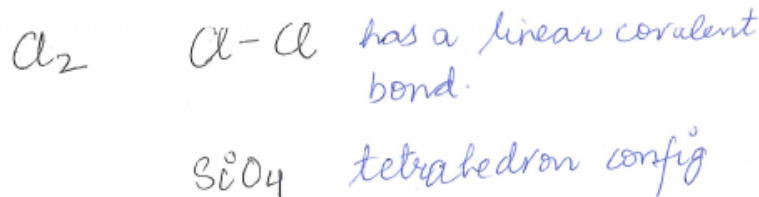 Cl2 Cl-Cl has a linear covalent
bond.
SiO4 tetrahedron config